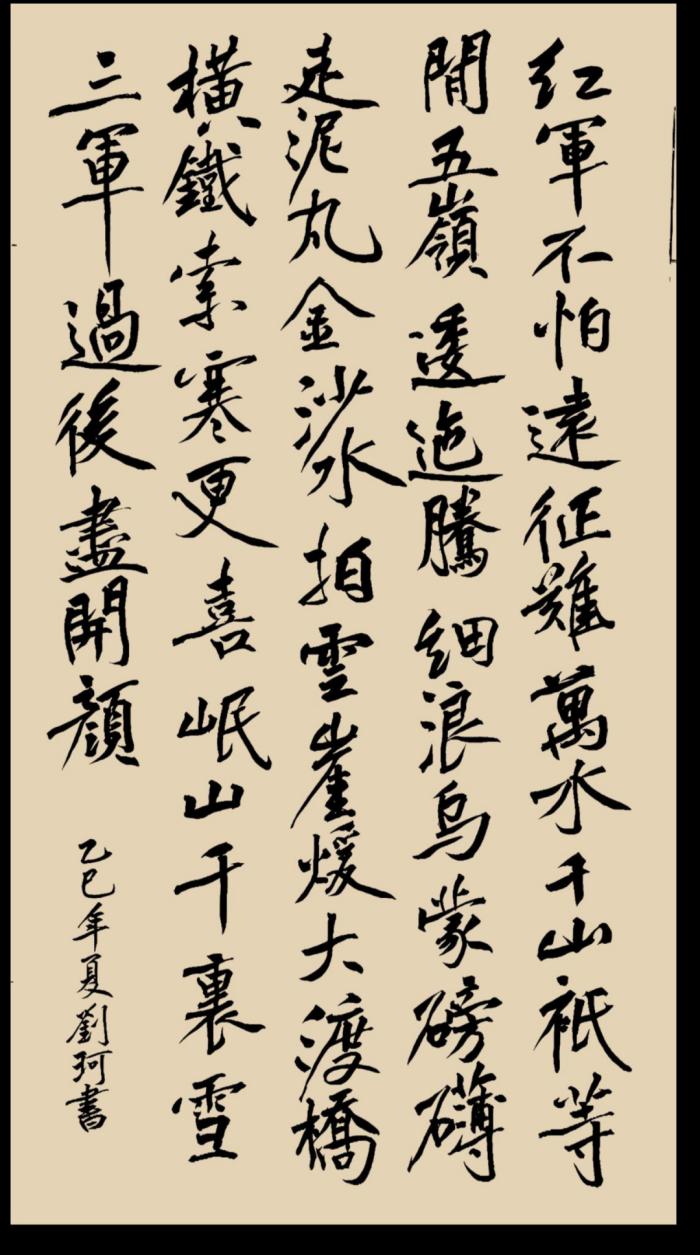 紅軍不怕遠征難萬水千山祇等
閒五嶺逶迤騰細浪烏蒙磅礴
走泥丸金沙水拍雲崖煖大渡橋
橫鐵索寒更喜岷山千裏雪
三軍過後盡開顏
乙巳年夏劉珂書